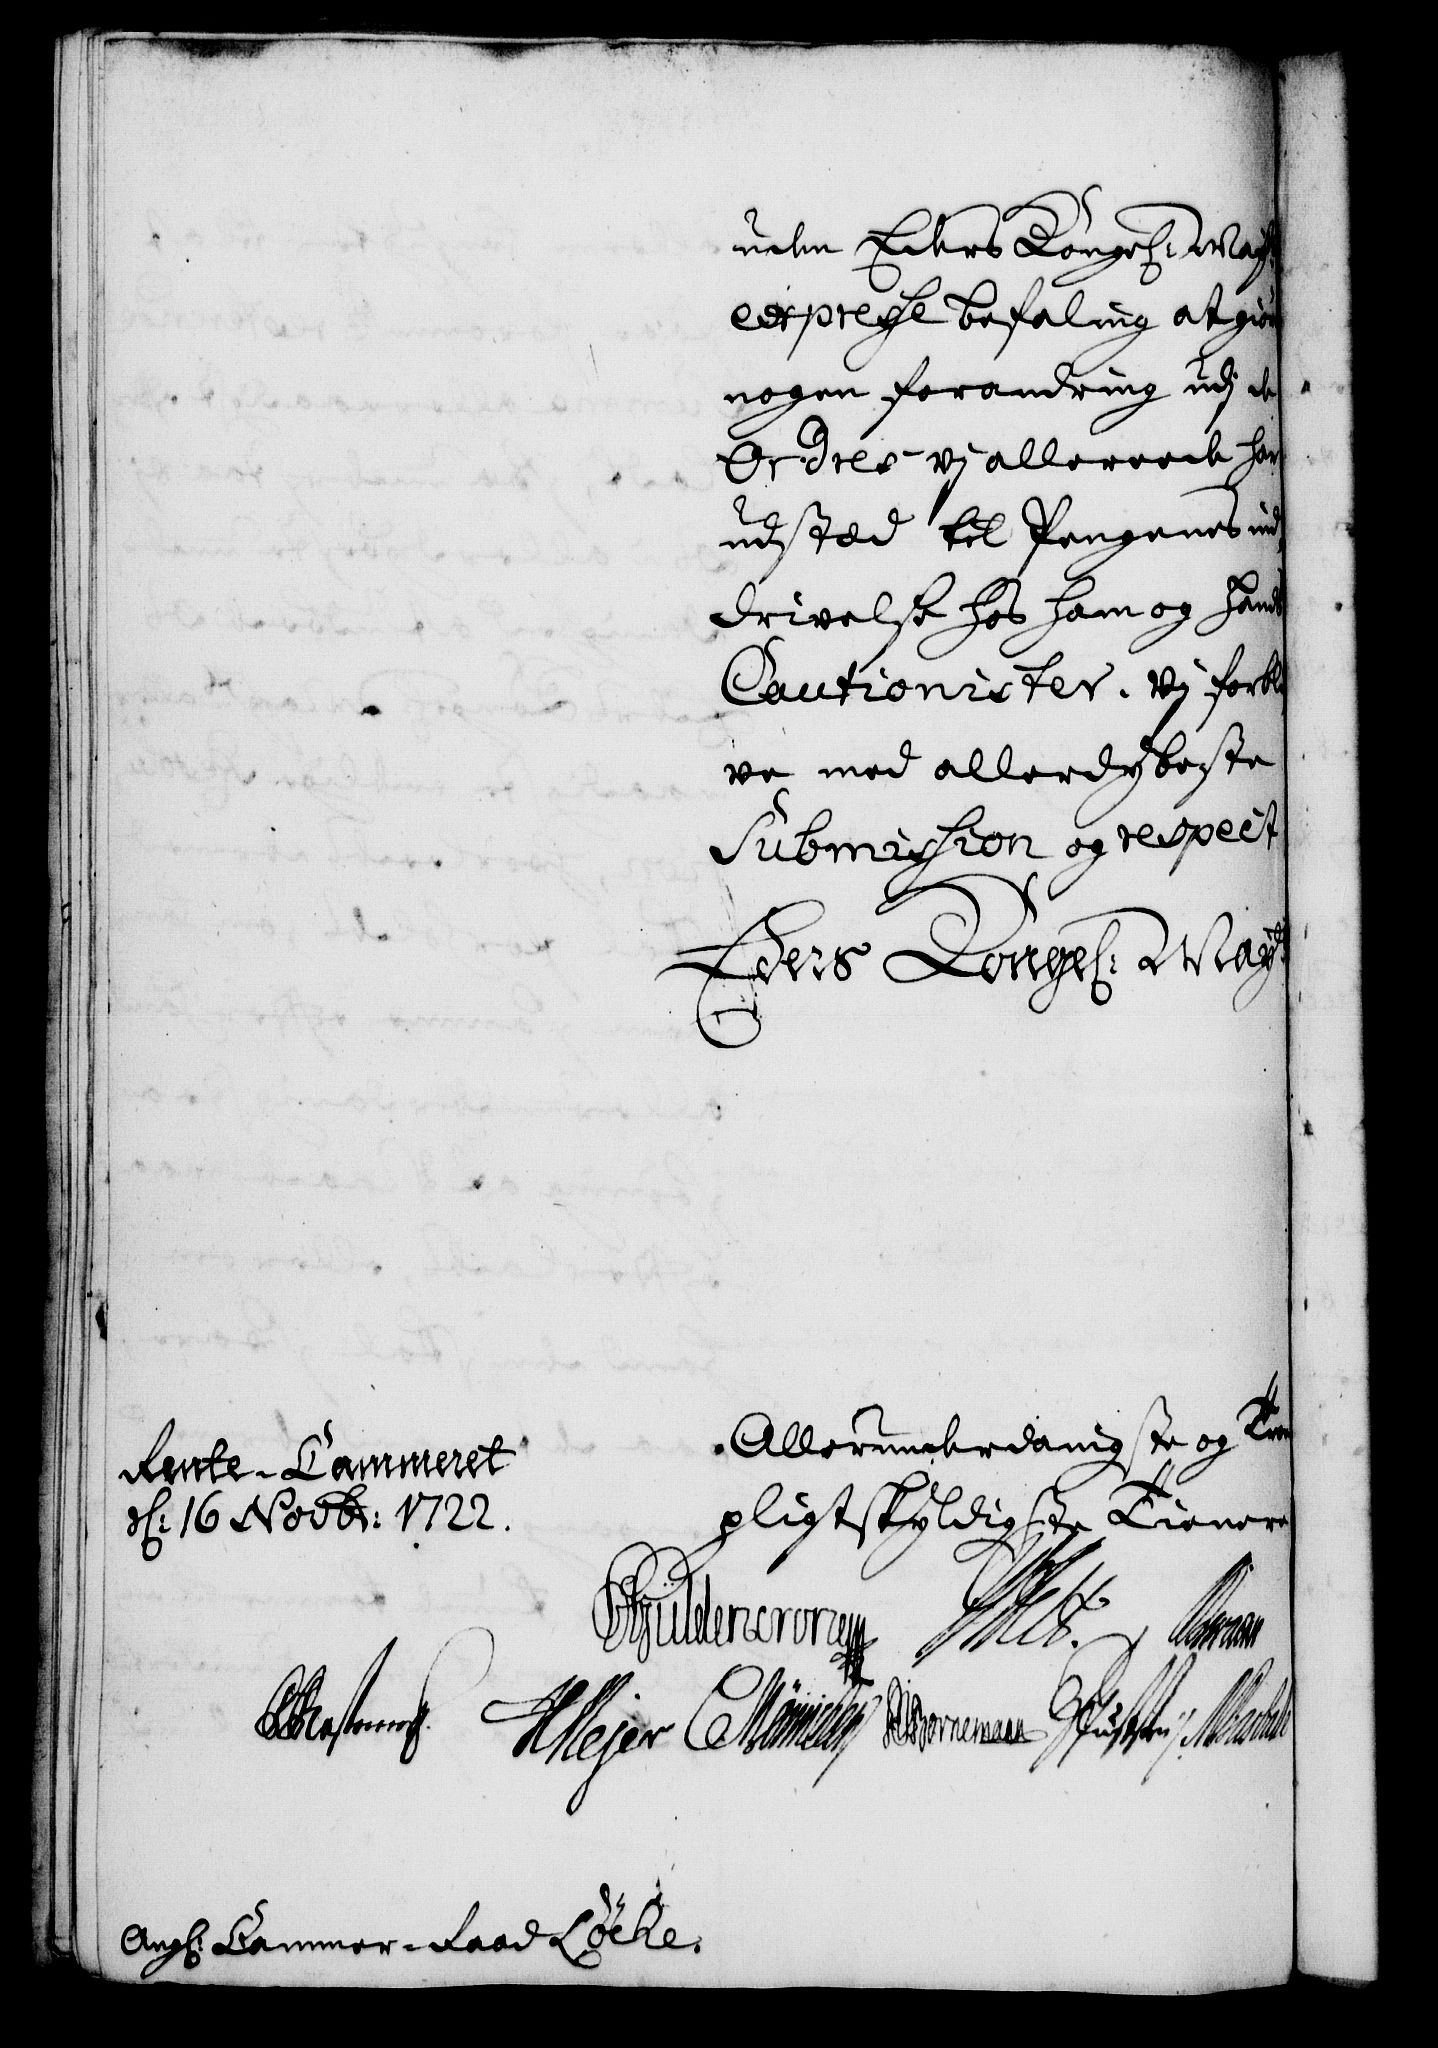 uden Eders Kongel: May:
expresse befaling at giøre
nogen forandring udj de
Ordres vj allereede har
udstæd til Pengenes ind,
drivelse hos ham og hands
Cautionister. vj forbli
ve med allerdybeste
Submission og respect
Eders Kongel: May:
Allerunderdanigste og Troe
pligtskyldigste Tienere
Rente-Cammeret
d: 16 Novb: 1722.
Güldencrone
HMejer Bornemann
Ang: Cammer-Raad Løcke.